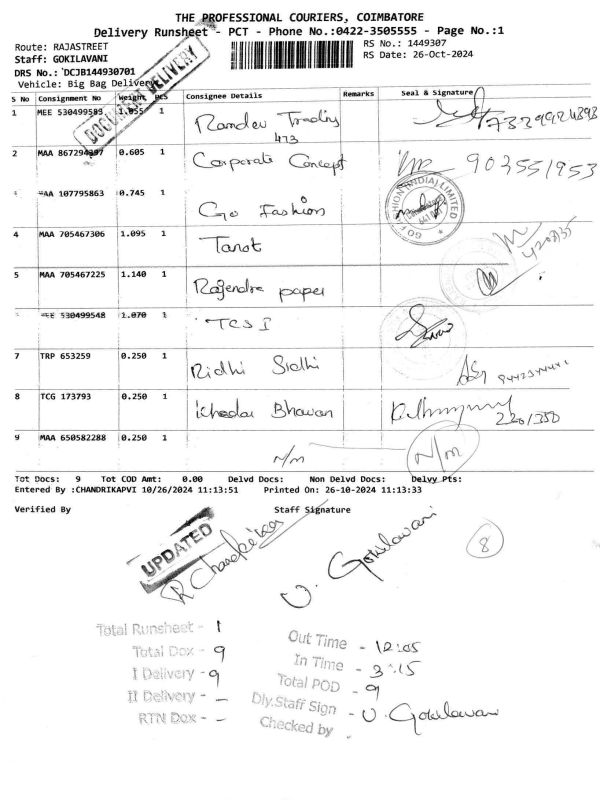 THE PROFESSIONAL COURIERS, COIMBATORE
Delivery Runsheet - PCT - Phone No.:0422-3505555 - Page No.:1
Route: RAJASTREET
RS No.: 1449307
Staff: GOKILAVANI
RS Date: 26-Oct-2024
DRS No.: DCJB144930701
Vehicle: Big Bag Delivery
DOCUMENT DELIVERY
S No Consignment No Weight PCS Consignee Details Remarks Seal & Signature
1 MEE 530499583 1.055 1 Randev Trading
473
2 MAA 867294397 0.605 1 Corporate Concept 9035551953
107795863 0.745 1 Go Fashion
GO FASHION (INDIA) LIMITED
4 MAA 705467306 1.095 1 Tarot
5 MAA 705467225 1.140 1 Rajendra paper
530499548 1.070 1 TCS I
7 TRP 653259 0.250 1 Ridhi Sidhi
8 TCG 173793 0.250 1 Khadai Bhavan
9 MAA 650582288 0.250 1 N/m N/m
Tot Docs: 9 Tot COD Amt: 0.00 Delvd Docs: Non Delvd Docs: Delvy Pts:
Entered By :CHANDRIKAPVI 10/26/2024 11:13:51 Printed On: 26-10-2024 11:13:33
Verified By Staff Signature
UPDATED
R Chandrika
V. Gokilavani
8
Total Runsheet - 1
Total Dox - 9
I Delivery - 9
II Delivery - –
RTN Dox - –
Out Time - 12:05
In Time - 3:15
Total POD - 9
Dly.Staff Sign - V. Gokilavani
Checked by